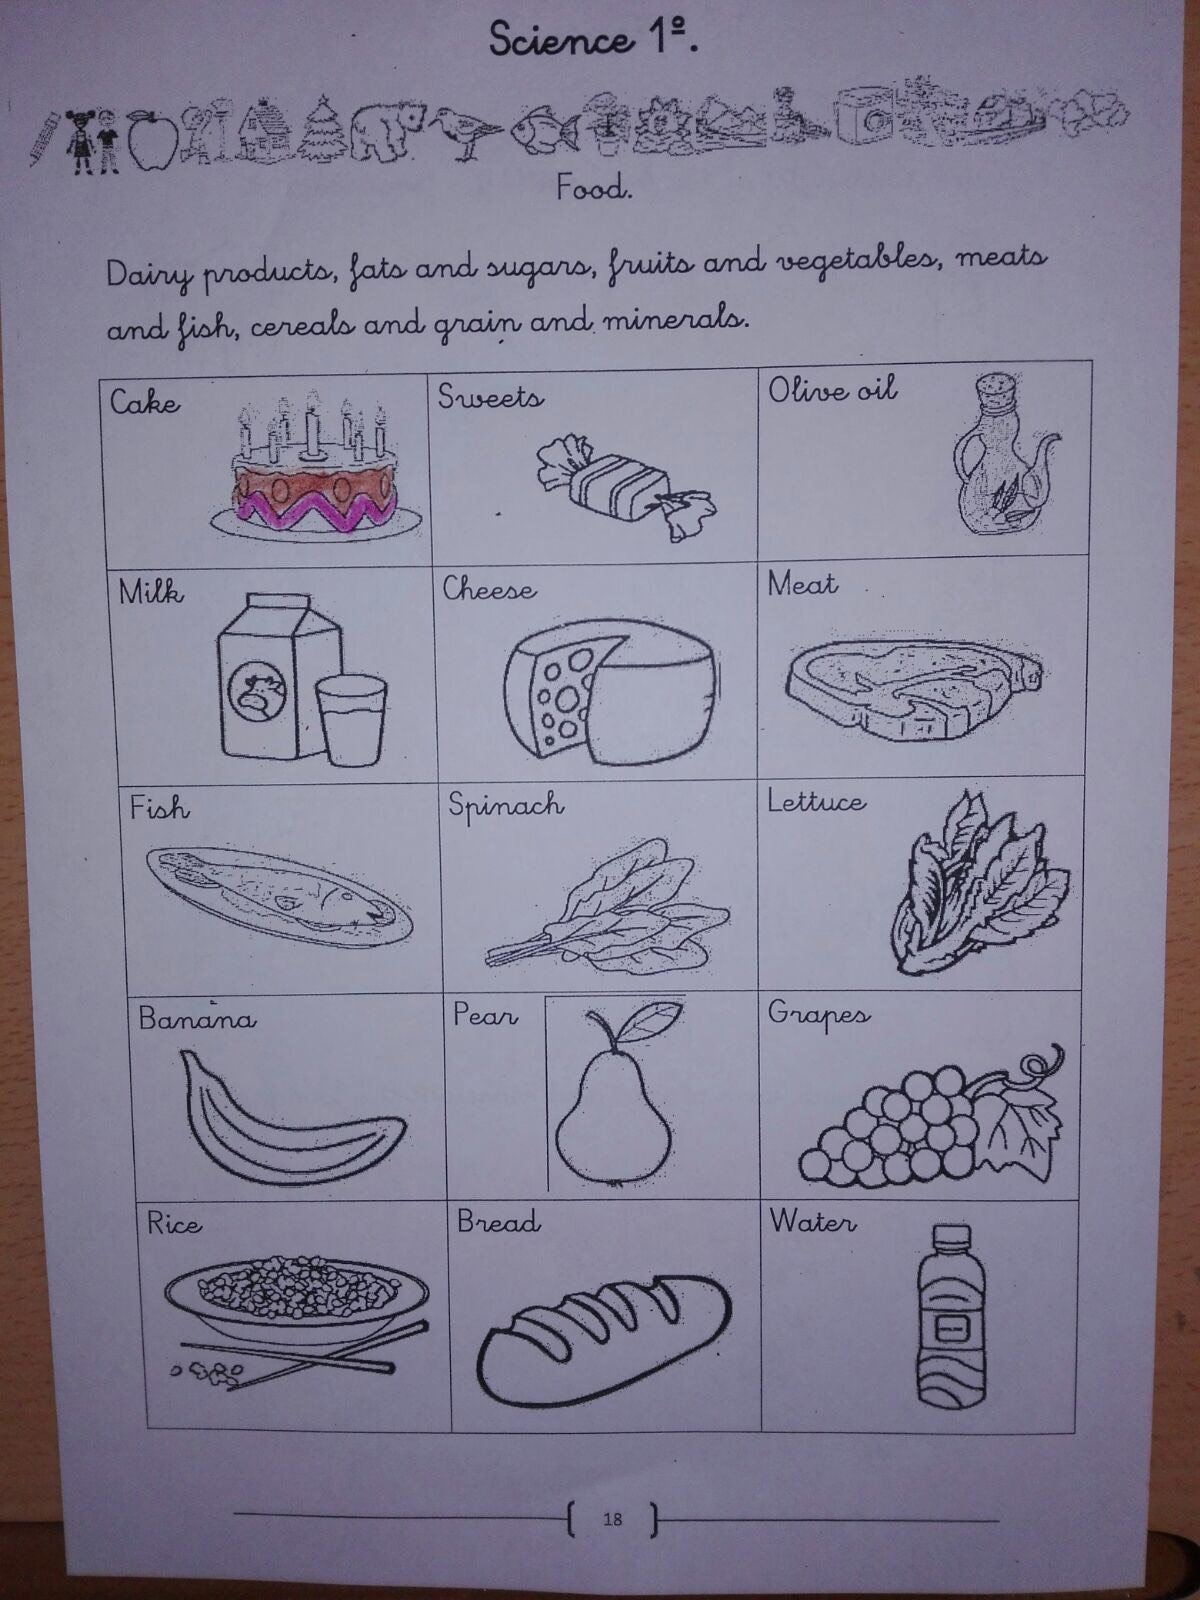 Science 1º.
Food.
Dairy products, fats and sugars, fruits and vegetables, meats
and fish, cereals and grain and minerals.
Cake
Sweets
Olive oil
Milk
Cheese
Meat
Fish
Spinach
Lettuce
Banana
Pear
Grapes
Rice
Bread
Water
18